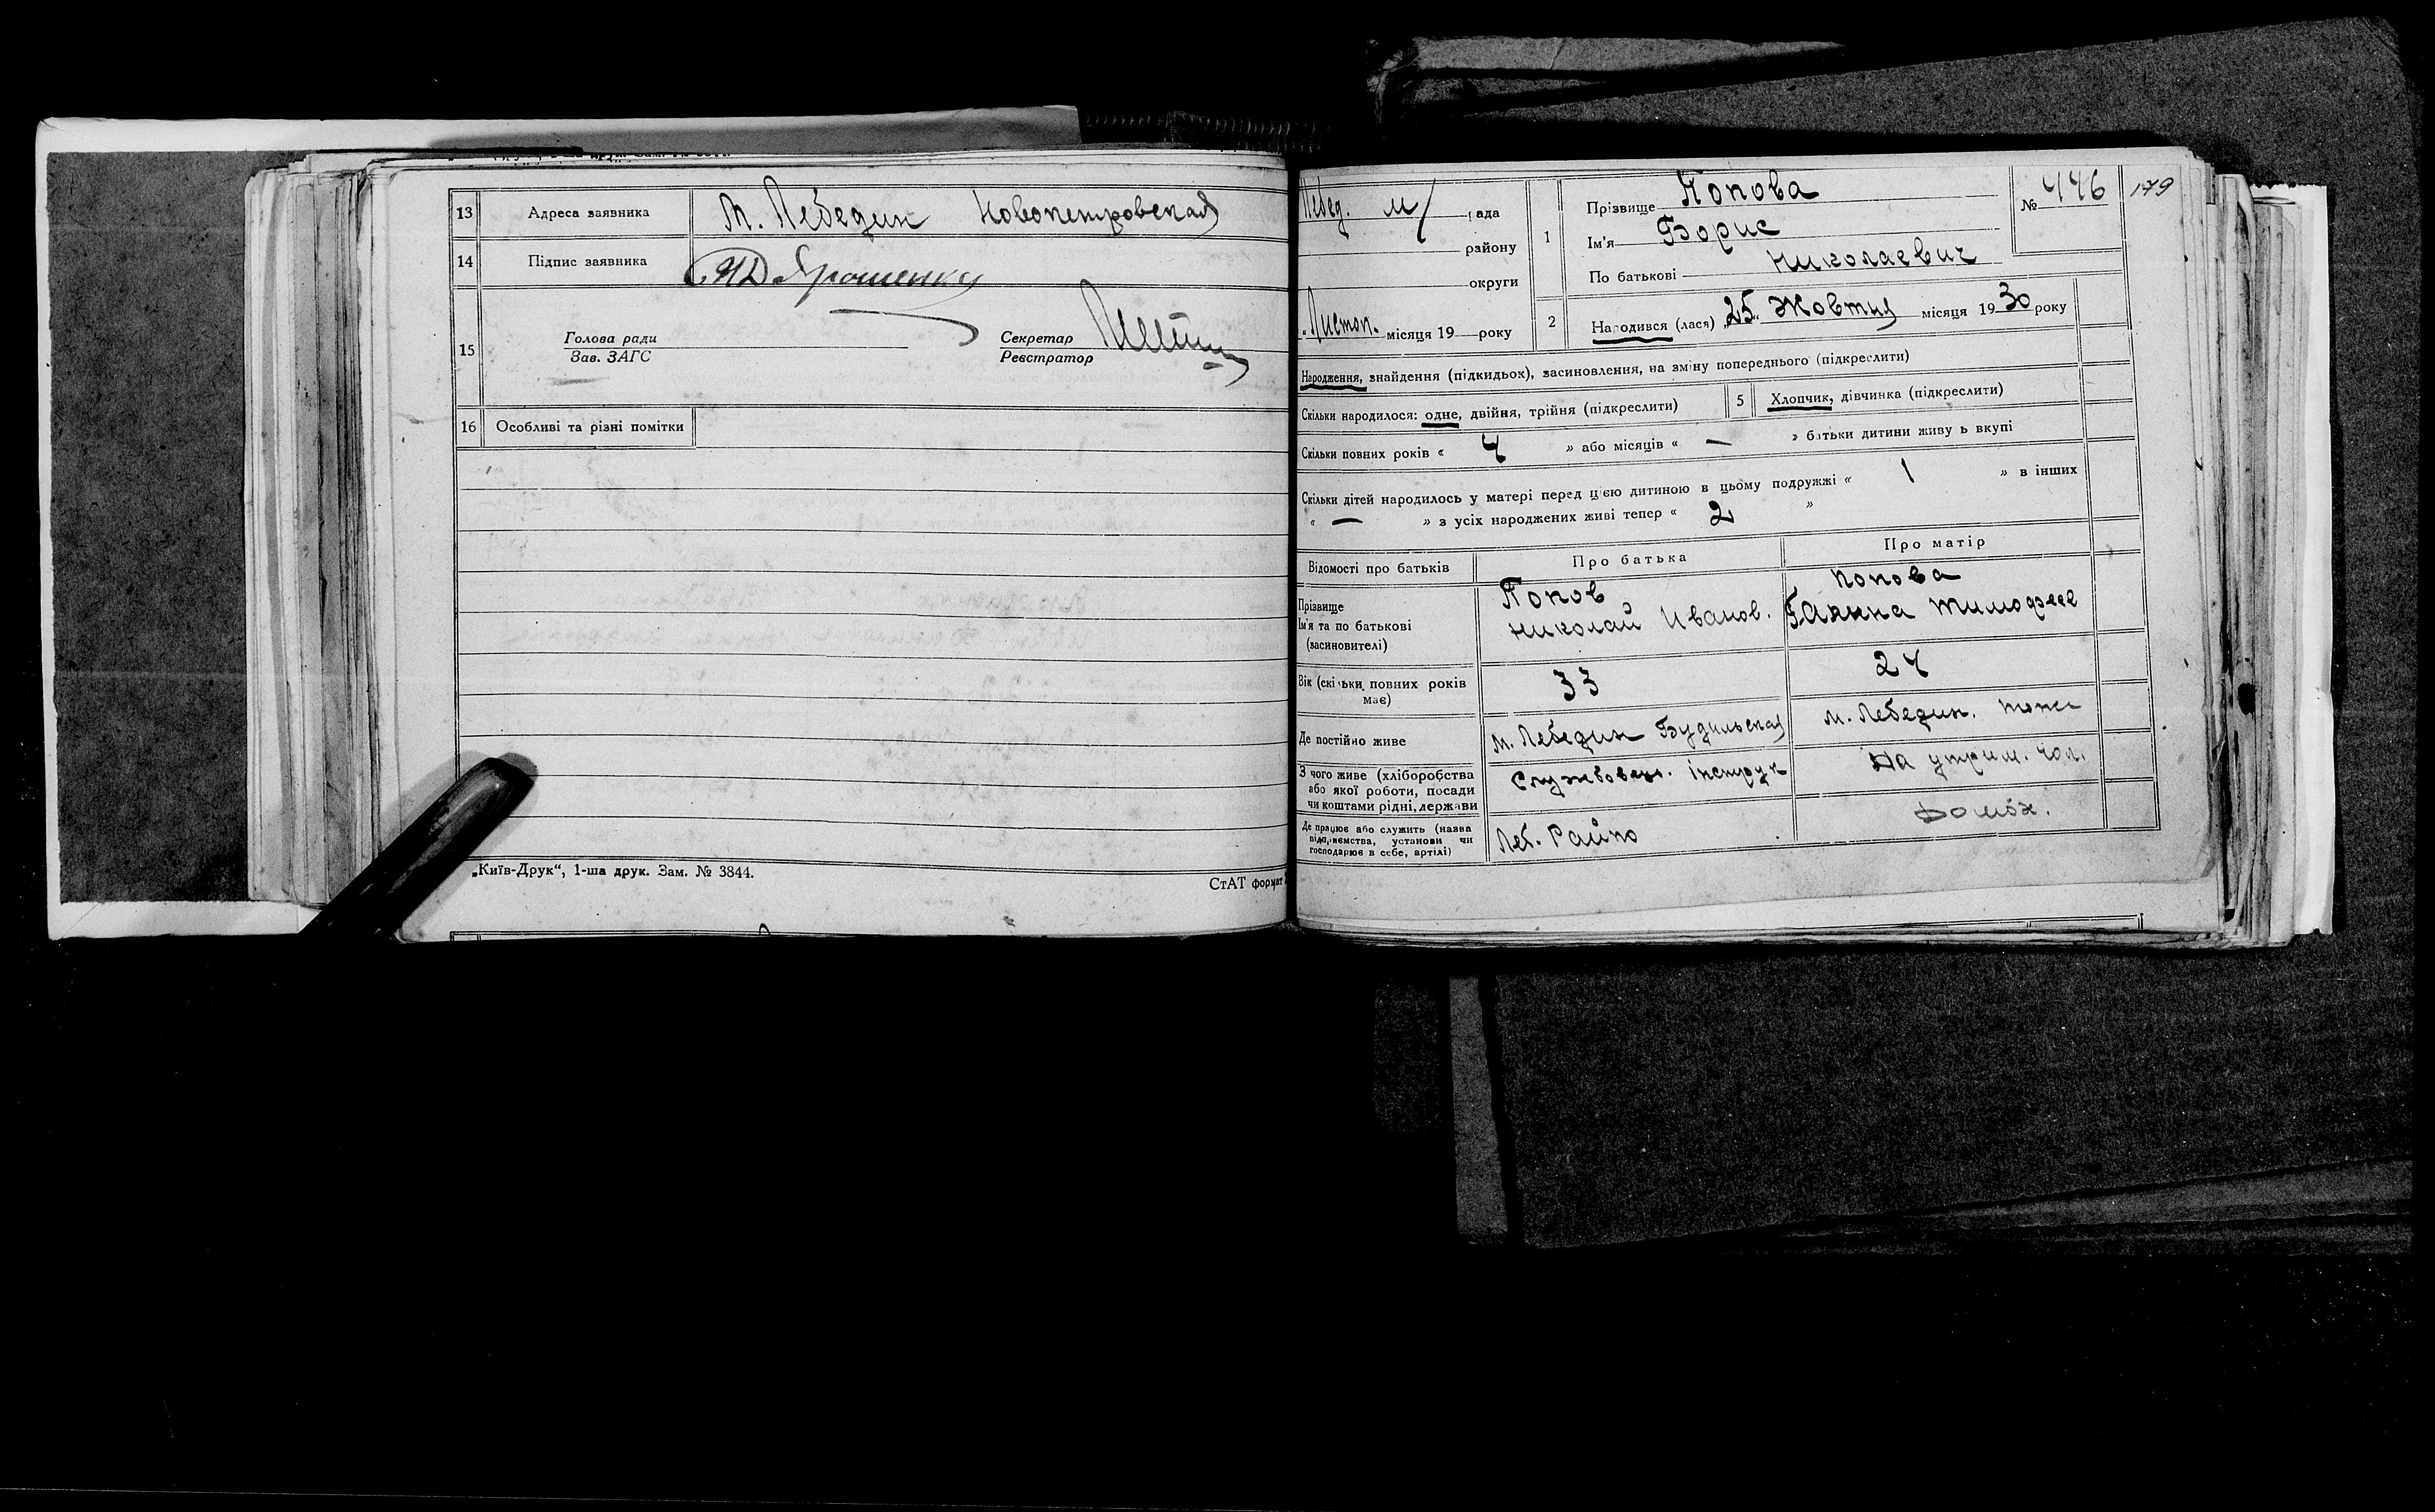 13 Адреса заявника м. Лебедин Новопетровская
14 Підпис заявника Ярошенко
15 Голова ради
Зав. ЗАГС
Секретар
Реєстратор
16 Особливі та різні помітки
„Київ-Друк“, 1-ша друк. Зам. № 3844.
СтАТ формат
Лебед. м/ рада
району
округи
Листоп. місяця 19 року
1 Прізвище Попова
Ім'я Борис
По батькові Николаевич
№ 446
179
2 Народився (лася) „25“ Жовтня місяця 1930 року
Народження, знайдення (підкидьок), засиновлення, на зміну попереднього (підкреслити)
Скільки народилося: одне, двійня, трійня (підкреслити)
5 Хлопчик, дівчинка (підкреслити)
Скільки повних років « 4 » або місяців « — » батьки дитини живу ь вкупі
Скільки дітей народилось у матері перед цією дитиною в цьому подружжі « 1 » в інших
« — » з усіх народжених живі тепер « 2 »
Відомості про батьків Про батька Про матір
Прізвище Попов Попова
Ім'я та по батькові Николай Иванов. Ганна Тимофее
(засиновителі)
Вік (скільки повних років має) 33 24
Де постійно живе м. Лебедин Будильская м. Лебедин. тоже
З чого живе (хліборобства або якої роботи, посади чи коштами рідні, держави Службовец. інструк На утрим. чол.
Де працює або служить (назва підприємства, установи чи господарює в себе, артілі) Леб. Райпо Домох.